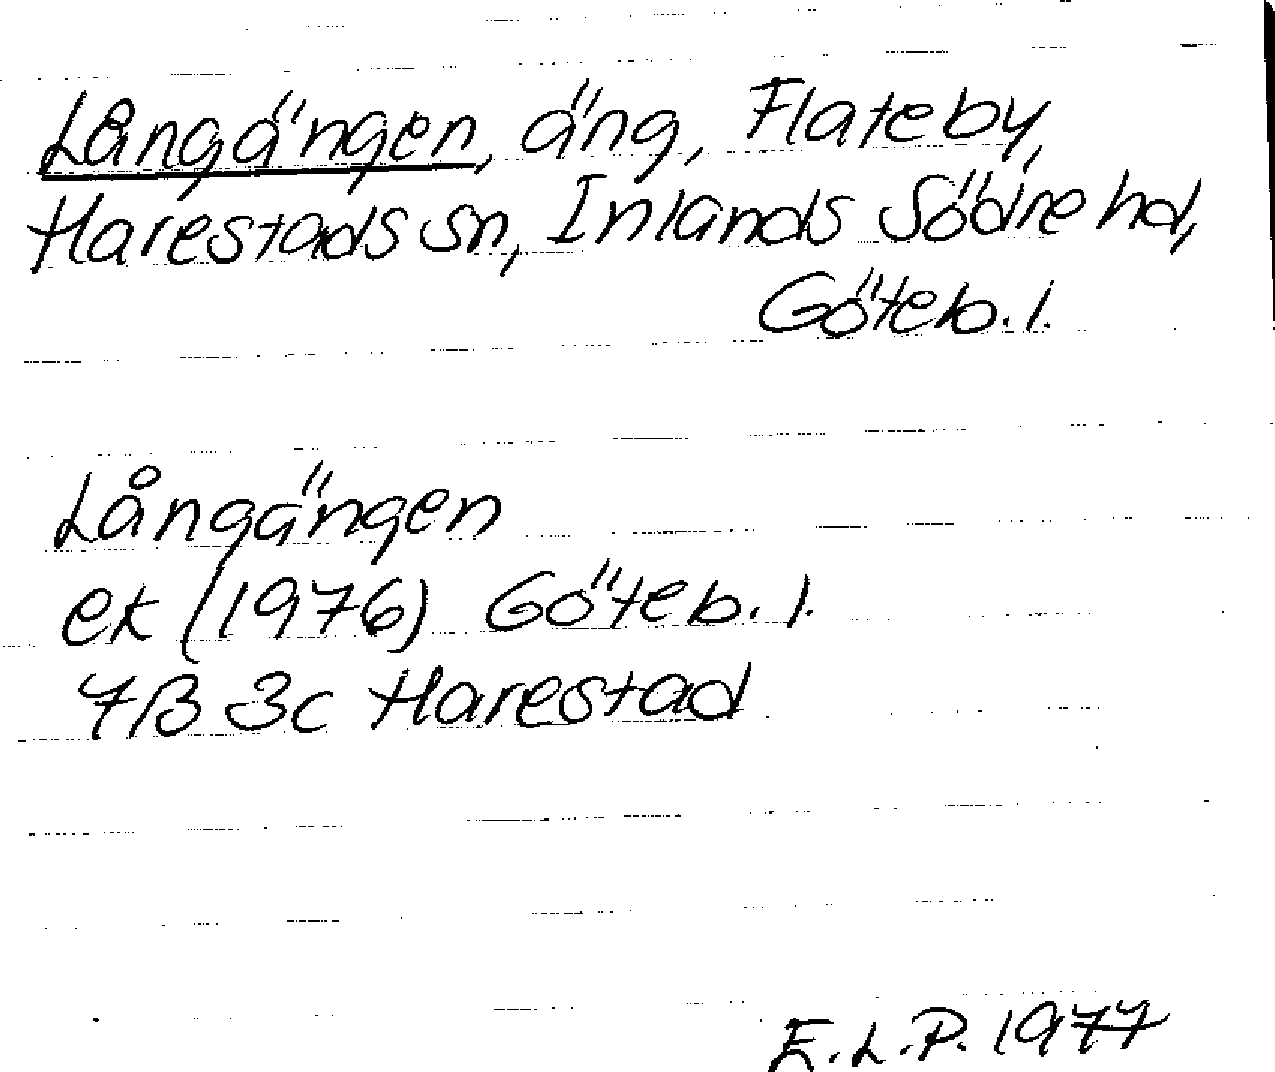 Långängen, äng, Flateby,
Harestads sn, Inlands Södre hd,
Göteb. l.
Långängen
ek (1976) Göteb. l.
7B 3c Harestad
E.L.P. 1977